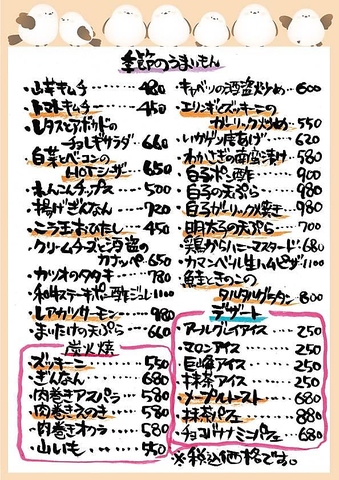 季節のうまいもん
・山芋キムチ……480
・トマトキムチー……450
・レタスとアボカドの
チョレギサラダ…660
・白菜とベーコンの
HOTシーザー 650
・れんこんチップス……500
・揚げぎんなん……720
・ニラ玉おひたし……450
・クリームチーズと酒盗の
カナッペ…650
・カツオのタタキ……780
・和牛ステーキポン酢ジュレ…1100
・レアガツサーモン……980
・まいたけの天ぷら……660
炭火焼
・ズッキーニ……550
・ぎんなん……680
・肉巻きアスパラ……580
・肉巻きえのき……580
・肉巻きオクラ……580
・山いも……550
・キャベツの酒盗炒め…600
・エリンギとズッキーニの
ガーリック炒め…550
・イカゲソ唐あげ……620
・わかさぎの南蛮漬け…580
・白子ポン酢……900
・白子の天ぷら……980
・白子ガーリック焼き…980
・明太子の天ぷら……700
・鶏からハニーマスタード…680
・カマンベール生ハムピザ…1100
・鮭ときのこの
タルタルグラタン…800
デザート
・アールグレイアイス……250
・マロンアイス……250
・巨峰アイス……250
・抹茶アイス……250
・メープルトースト……680
・抹茶パフェ……880
・チョコバナナミニパフェ…680
※税込価格です。